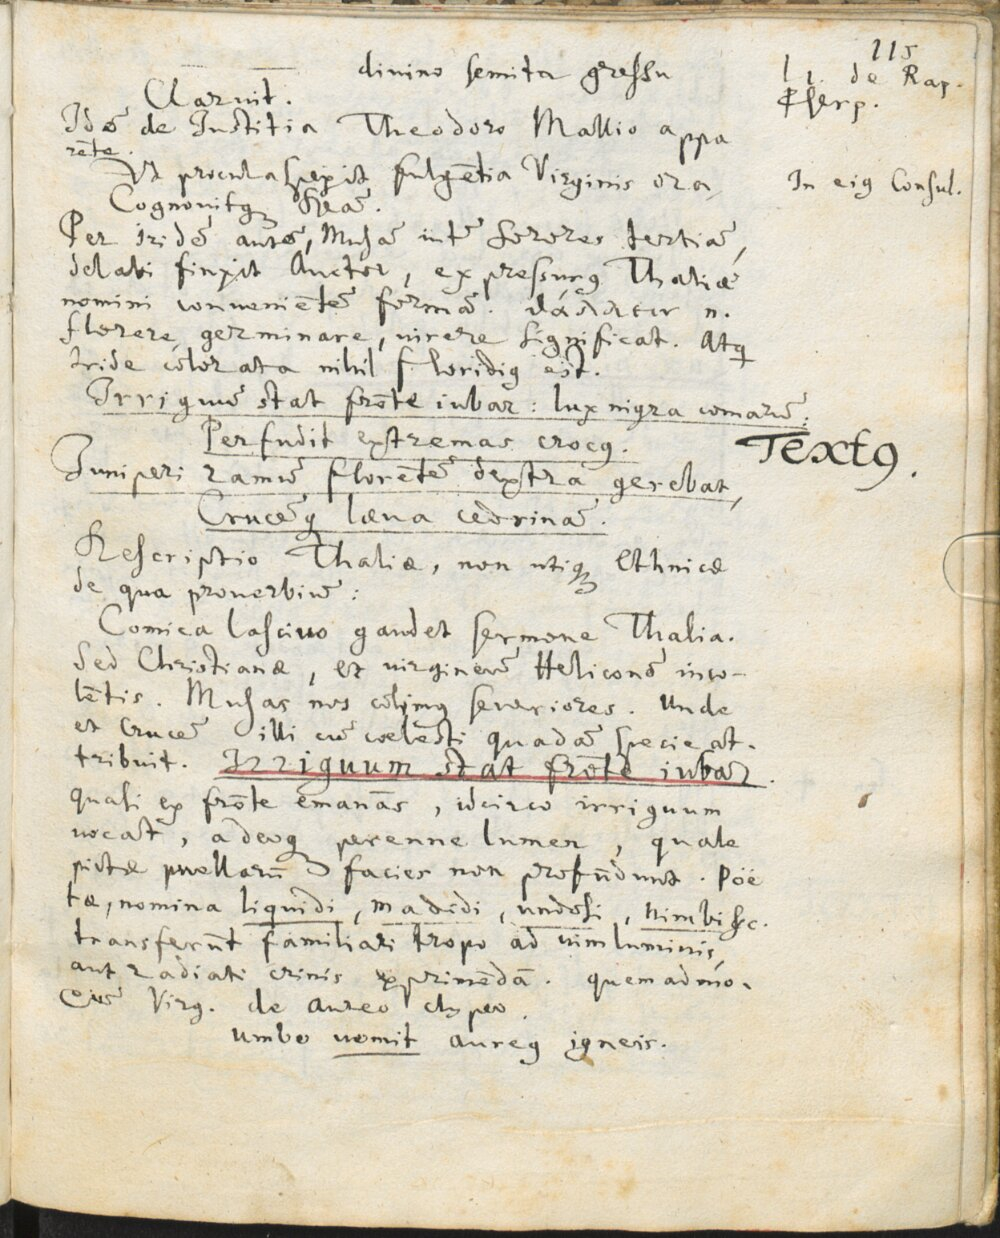 115
— — divino semita gressu
l 1. de Rap.
Claruit.
Pserp.
Idē de Iustitia Theodoro Mallio appa
rēte.
Ut procul aspexit fulgētia Virginis ora,
In eiꝰ Consul.
Cognovitqꝫ Deā.
Per Iridē autē, Musā intē sorores tertiā,
delabi finxit Auctor, expressurꝰ Thaliæ
nomini convenientē formā. θάλλειν n.
florere, germinare, virere significat. Atq
Iride colorata nihil floridiꝰ est.
Irriguū stat frōte iubar: lux nigra comarū:
Perfudit extremas crocꝰ.
Textꝰ.
Iuniperi ramū florētē dextra gerebat,
Crucēqꝫ læva cedrinā.
Descriptio Thaliæ, non utiqꝫ Ethnicæ
de qua proverbiū:
Comica lascivo gaudet sermone Thalia.
Sed Christianæ, et virgineū Heliconē inco-
lētis. Musas nos colimꝰ severiores. Unde
et Crucē illi cū coelesti quadā specie at-
tribuit. Irriguum stat frōte iubar.
quasi ex frōte emanās, idcirco irriguum
vocat, adeoqꝫ perenne lumen, quale
pictæ puellarū facies non profūdunt. Poë
tæ, nomina liquidi, madidi, undosi, nimbi &c.
transferūt familiari tropo ad vim luminis,
aut radiati crinis exprimēdā. quemadmo-
Virg. de aureo clypeo.
Umbo vomit aureꝰ igneis.